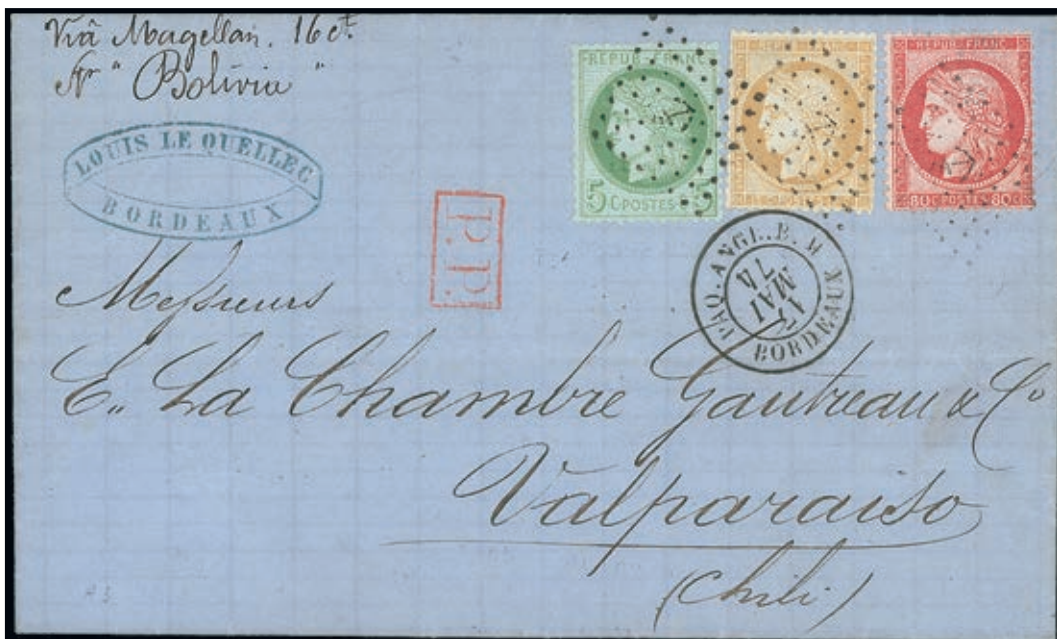 Viâ Magellan. 16 ct.
Pr " Bolivia "
LOUIS LE QUELLEC
BORDEAUX
P.P.
REPUB. FRANC.
5 C POSTES 5
REPUB. FRANC.
REPUB. FRANC.
80 C POSTES 80 C
PAQ. ANGL. B. M BORDEAUX
17
MAI
74
Messieurs
E. La Chambre Gautreau & Co
Valparaiso
(Chili)